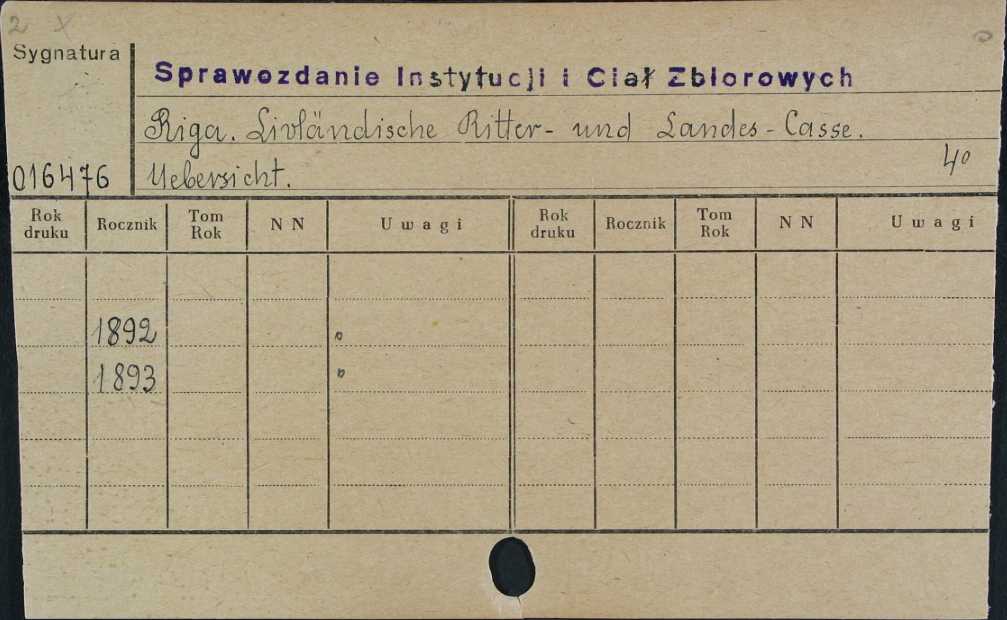 2 x
Sygnatura
Sprawozdanie Instytucji i Ciał Zbiorowych
Riga. Livländische Ritter- und Landes-Casse.
4o
016476 Uebersicht.
Rok druku Rocznik Tom Rok N N Uwagi Rok druku Rocznik Tom Rok N N Uwagi
1892 o
1893 o